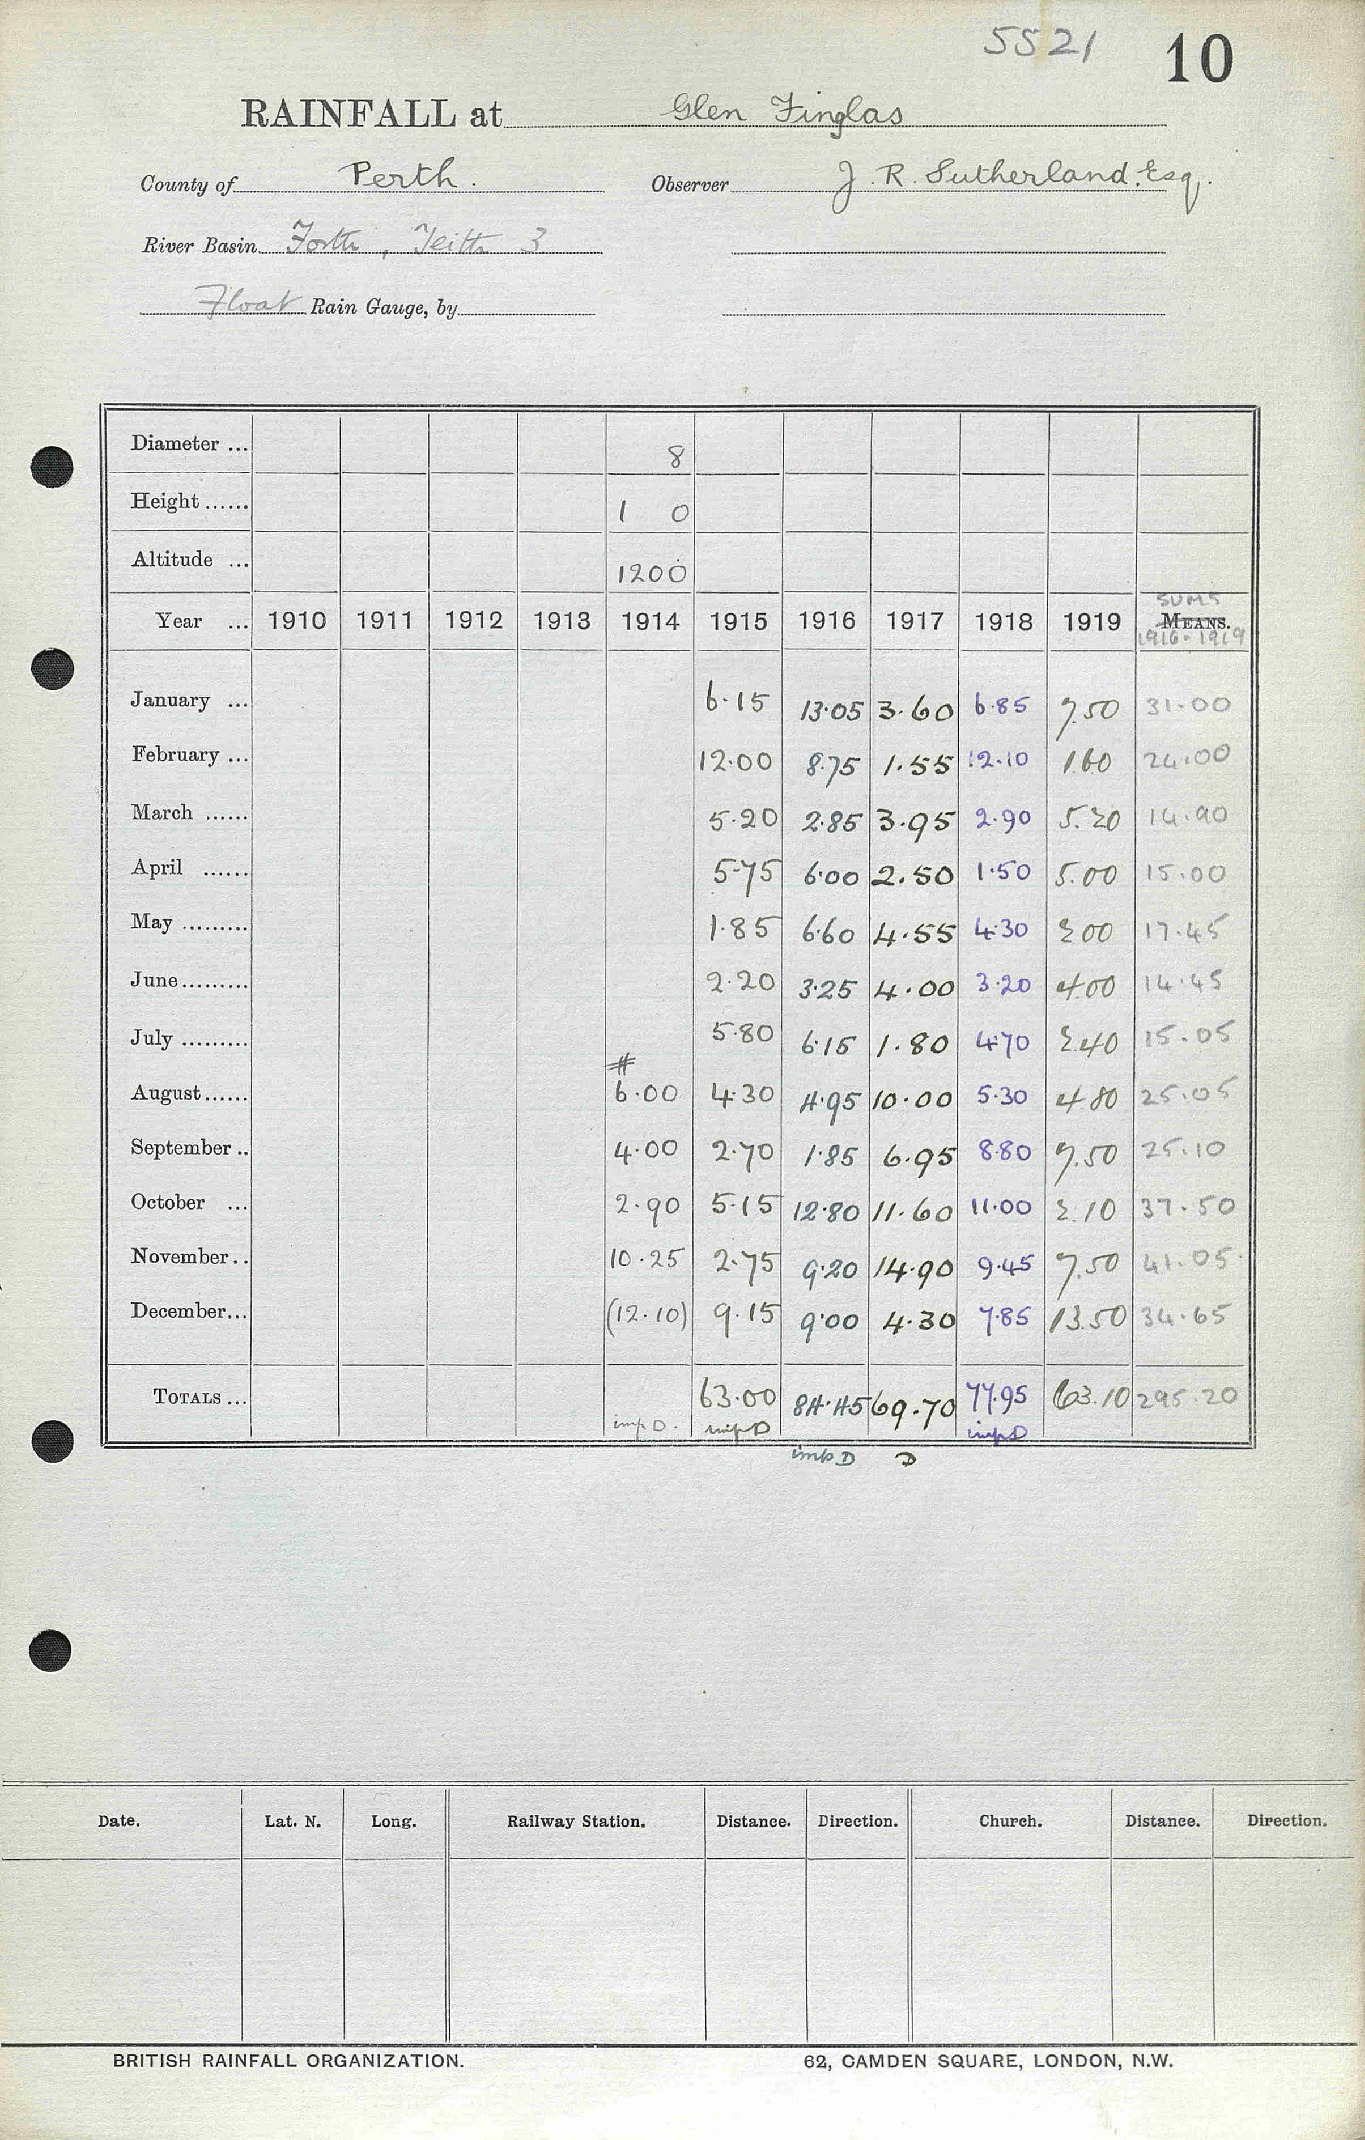 5521 10
RAINFALL at Glen Finglas
County of Perth. Observer J. R. Sutherland. Esq.
River Basin Forth, Teith 3
Float Rain Gauge, by
Diameter ... 8
Height ...... 1 0
Altitude ... 1200
SUMS
Year ... 1910 1911 1912 1913 1914 1915 1916 1917 1918 1919 MEANS.
1916-1919
January ... 6.15 13.05 3.60 6.85 7.50 31.00
February ... 12.00 8.75 1.55 12.10 1.60 24.00
March ...... 5.20 2.85 3.95 2.90 5.20 14.90
April ...... 5.75 6.00 2.50 1.50 5.00 15.00
May ......... 1.85 6.60 4.55 4.30 2.00 17.45
June......... 2.20 3.25 4.00 3.20 4.00 14.45
July ......... 5.80 6.15 1.80 4.70 2.40 15.05
#
August...... 6.00 4.30 4.95 10.00 5.30 4.80 25.05
September .. 4.00 2.70 1.85 6.95 8.80 7.50 25.10
October ... 2.90 5.15 12.80 11.60 11.00 2.10 37.50
November.. 10.25 2.75 9.20 14.90 9.45 7.50 41.05
December... (12.10) 9.15 9.00 4.30 7.85 13.50 34.65
TOTALS ... 63.00 84.45 69.70 77.95 63.10 295.20
imp D. imp D imp D
imp D D
Date. Lat. N. Long. Railway Station. Distance. Direction. Church. Distance. Direction.
BRITISH RAINFALL ORGANIZATION. 62, CAMDEN SQUARE, LONDON, N.W.